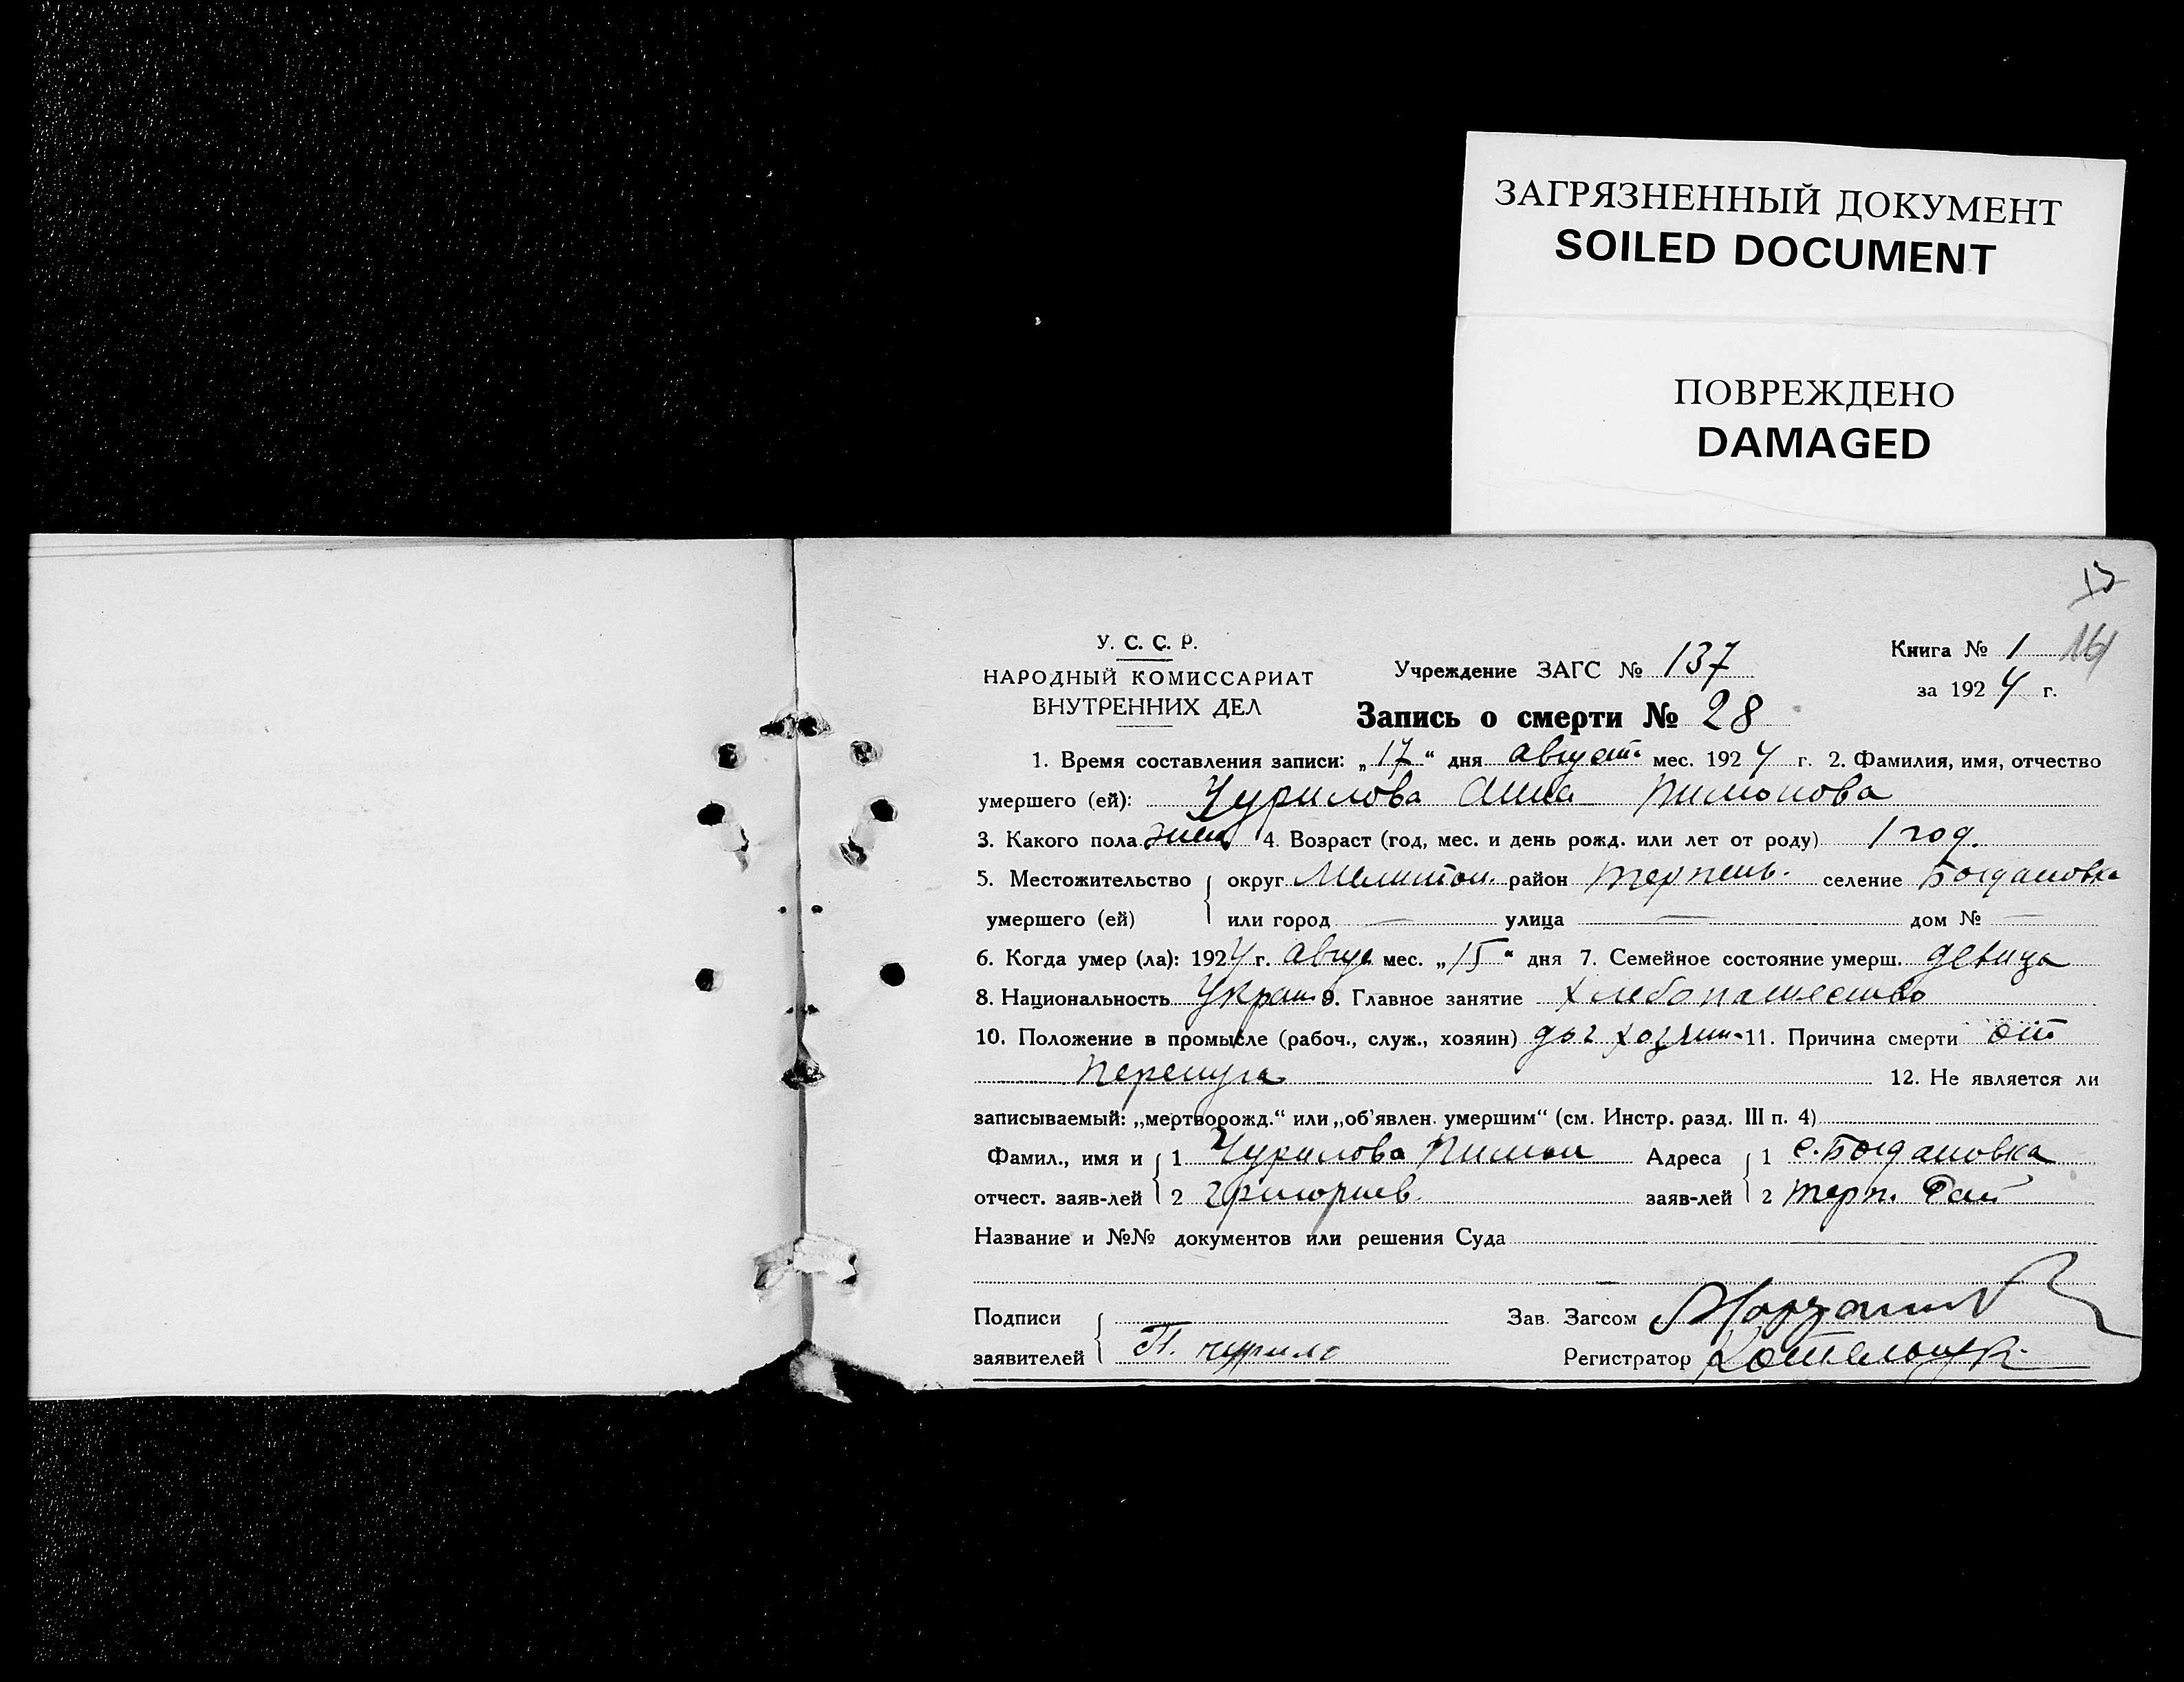 ЗАГРЯЗНЕННЫЙ ДОКУМЕНТ
SOILED DOCUMENT
ПОВРЕЖДЕНО
DAMAGED
У. С. С. Р.
НАРОДНЫЙ КОМИССАРИАТ
ВНУТРЕННИХ ДЕЛ
Учреждение ЗАГС № 137
Книга № 1 16
за 1924 г.
Запись о смерти № 28
1. Время составления записи: „17“ дня август. мес. 1924 г. 2. Фамилия, имя, отчество
умершего (ей): Чурилова Анна Пимонова
3. Какого пола жен 4. Возраст (год, мес. и день рожд. или лет от роду) 1 год.
5. Местожительство округ Мелитоп. район Терпень. селение Богдановка
умершего (ей) или город — улица — дом № —
6. Когда умер (ла): 1924 г. авгус мес. „15“ дня 7. Семейное состояние умерш. девица
8. Национальность Украин 9. Главное занятие хлебопашество
10. Положение в промысле (рабоч., служ., хозяин) доч хозяин. 11. Причина смерти от
перепуга 12. Не является ли
записываемый: „мертворожд.“ или „об'явлен. умершим“ (см. Инстр. разд. III п. 4)
Фамил., имя и 1 Чурилова Пимон Адреса 1 с. Богдановка
отчест. заяв-лей 2 Григориев. заяв-лей 2 Терп. Рай
Название и №№ документов или решения Суда
Подписи Зав. Загсом
заявителей П. чурило Регистратор